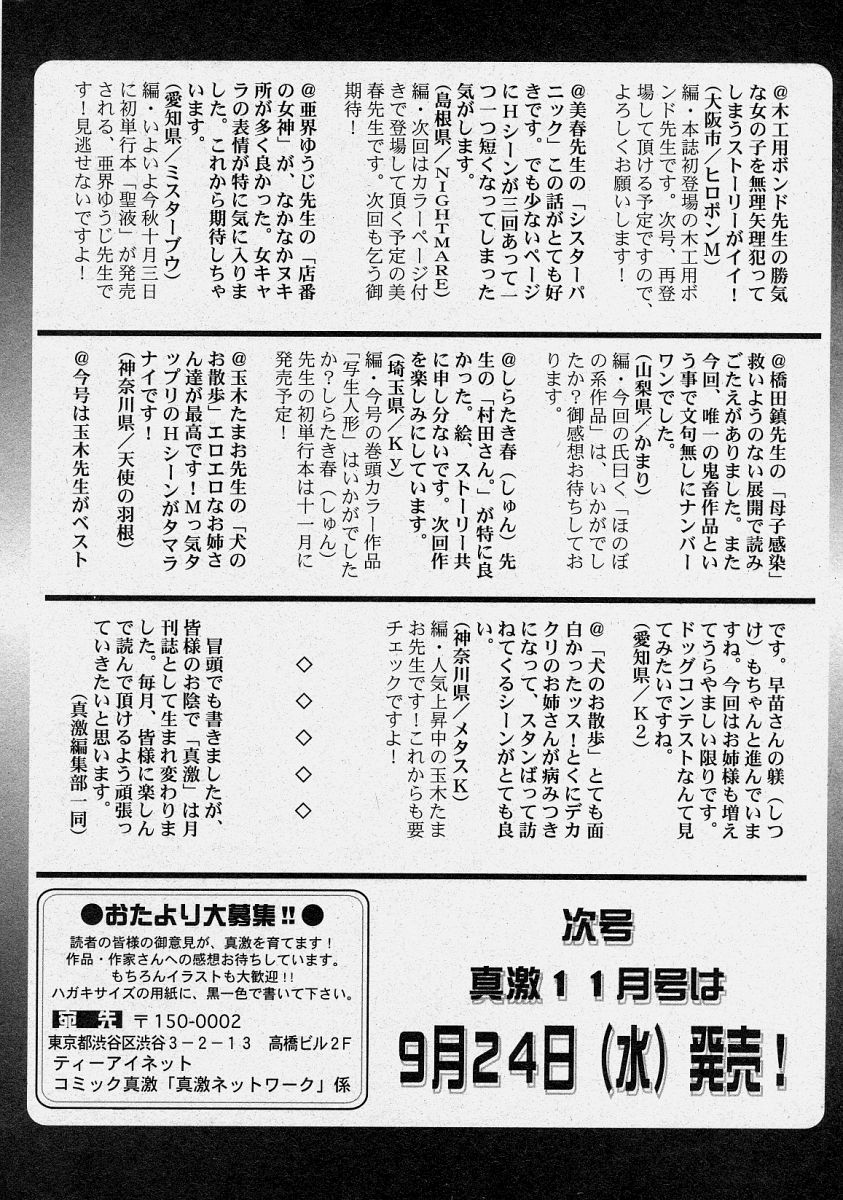 @木工用ボンド先生の勝気
な女の子を無理矢理犯って
しまうストーリーがイイ！
（大阪市／ヒロポンM）
編・本誌初登場の木工用ボ
ンド先生です。次号、再登
場して頂ける予定ですので、
よろしくお願いします！
@美春先生の「シスターパ
ニック」この話がとても好
きです。でも少ないページ
にHシーンが三回あって一
つ一つ短くなってしまった
気がします。
（島根県／NIGHTMARE）
編・次回はカラーページ付
きで登場して頂く予定の美
春先生です。次回も乞う御
期待！
@亜界ゆうじ先生の「店番
の女神」が、なかなかヌキ
所が多く良かった。女キャ
ラの表情が特に気に入りま
した。これから期待しちゃ
います。
（愛知県／ミスターブウ）
編・いよいよ今秋十月三日
に初単行本「聖液」が発売
される、亜界ゆうじ先生で
す！見逃せないですよ！
@橋田鎮先生の「母子感染」
救いようのない展開で読み
ごたえがありました。また
今回、唯一の鬼畜作品とい
う事で文句無しにナンバー
ワンでした。
（山梨県／かまり）
編・今回の氏曰く「ほのぼ
の系作品」は、いかがでし
たか？御感想お待ちしてお
ります。
@しらたき春（しゅん）先
生の「村田さん。」が特に良
かった。絵、ストーリー共
に申し分ないです。次回作
を楽しみにしています。
（埼玉県／Ky）
編・今号の巻頭カラー作品
「写生人形」はいかがでした
か？しらたき春（しゅん）
先生の初単行本は十一月に
発売予定！
@玉木たまお先生の「犬の
お散歩」エロエロなお姉さ
ん達が最高です！Mっ気タ
ップリのHシーンがタマラ
ナイです！
（神奈川県／天使の羽根）
@今号は玉木先生がベスト
です。早苗さんの躾（しつ
け）もちゃんと進んでいま
すね。今回はお姉様も増え
てうらやましい限りです。
ドッグコンテストなんて見
てみたいですね。
（愛知県／K2）
@「犬のお散歩」とても面
白かったッス！とくにデカ
クリのお姉さんが病みつき
になって、スタンばって訪
ねてくるシーンがとても良
い。
（神奈川県／メタスK）
編・人気上昇中の玉木たま
お先生です！これからも要
チェックですよ！
◇◇◇◇◇
冒頭でも書きましたが、
皆様のお陰で「真激」は月
刊誌として生まれ変わりま
した。毎月、皆様に楽しん
で読んで頂けるよう頑張っ
ていきたいと思います。
（真激編集部一同）
次号
真激11月号は
9月24日（水）発売！
●おたより大募集!!●
読者の皆様の御意見が、真激を育てます！
作品・作家さんへの感想お待ちしています。
もちろんイラストも大歓迎!!
ハガキサイズの用紙に、黒一色で書いて下さい。
宛先 〒150-0002
東京都渋谷区渋谷3－2－13 高橋ビル2F
ティーアイネット
コミック真激「真激ネットワーク」係